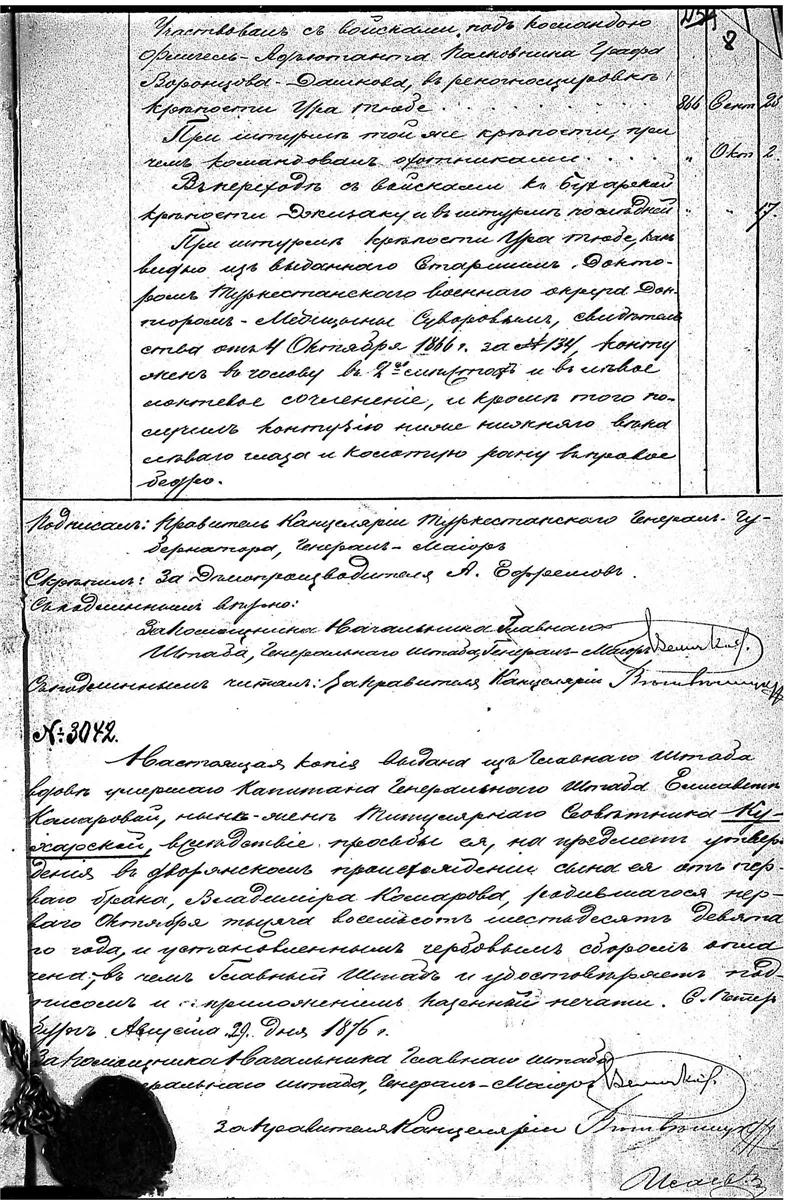 8
Участвовалъ съ войсками, подъ командою
Флигель-Адъютанта Полковника Графа
Воронцова-Дашкова, въ рекогносцировкѣ
крѣпости Ура тюбе . . . . . . 866 Сент 25
При штурмѣ той же крѣпости, при
чемъ командовалъ охотниками . . . . „ Окт 2.
Въ переходѣ съ войсками къ Бухарской
крѣпости Джизаку и въ штурмѣ послѣдней „ „ 17.
При штурмѣ крѣпости Ура тюбе, какъ
видно изъ выданнаго Старшимъ Докто-
ромъ Туркестанскаго военнаго округа Док-
торомъ-Медицины Суворовымъ, свидѣтель
ства отъ 4 Октября 1866 г. за № 134, конту
женъ въ голову въ 2хъ мѣстахъ и въ лѣвое
локтевое сочлененіе, и кромѣ того по-
лучилъ контузію ниже нижняго вѣка
лѣваго глаза и колотую рану въ правое
бедро.
Подписалъ: Правитель Канцеляріи Туркестанскаго Генералъ-Гу-
бернатора, Генералъ-Маіоръ
Скрѣпилъ: За Дѣлопроизводителя А. Ефремовъ.
Съ подлиннымъ вѣрно:
За Помощника Начальника Главнаго
Штаба, Генеральнаго штаба, Генералъ-Маіоръ
Съ подлиннымъ читалъ: За Правителя Канцеляріи
№ 3042.
Настоящая копія выдана изъ Главнаго Штаба
вдовѣ умершаго Капитана Генеральнаго Штаба Елисаветѣ
Комаровой, нынѣ-женѣ Титулярнаго Совѣтника Ку-
харской, вслѣдствіе просьбы ея, на предметъ утвер
жденія въ дворянскомъ происхожденіи сына ея отъ пер-
ваго брака, Владиміра Комарова, родившагося пер-
ваго Октября тысяча восемьсотъ шестьдесятъ девята
го года, и установленнымъ гербовымъ сборомъ опла
чена; въ чемъ Главный Штабъ и удостовѣряетъ под-
писомъ и приложеніемъ казенной печати. С. Петер
бургъ Августа 29 дня 1876 г.
За Помощника Начальника Главнаго штаба
штаба, Генералъ-Маіоръ
За Правителя Канцеляріи